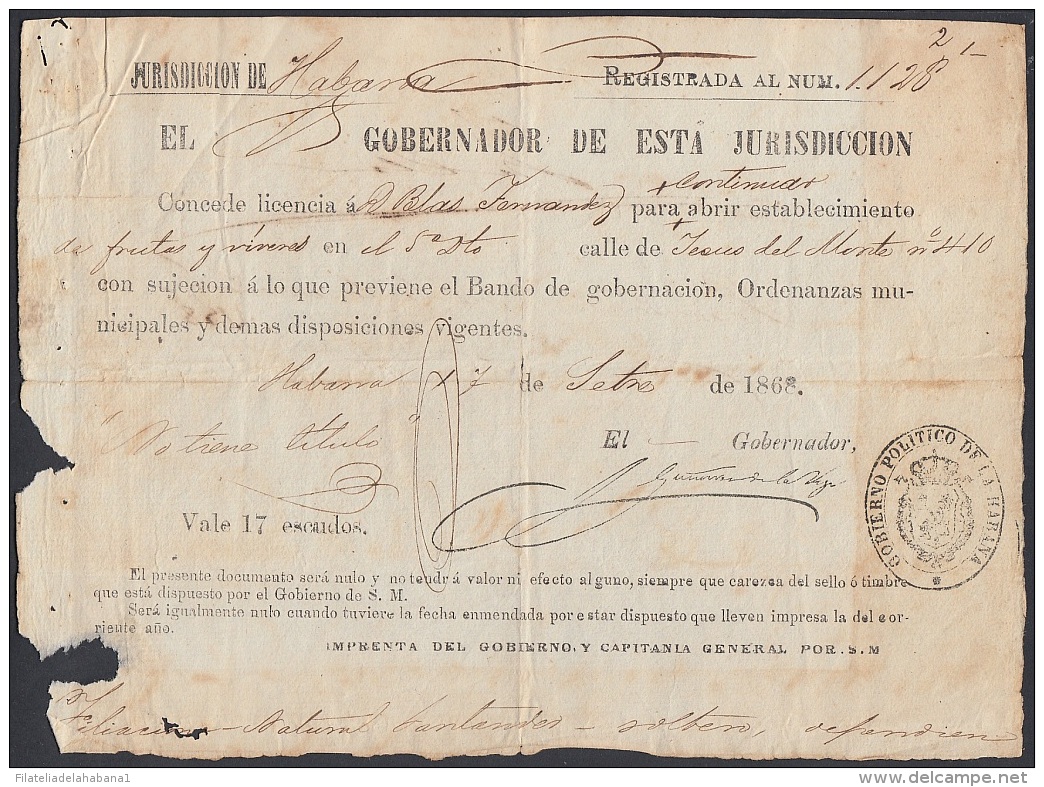 2 1-
JURISDICCION DE Habana
REGISTRADA AL NUM. 1.128
EL GOBERNADOR DE ESTA JURISDICCION
continuar
Concede licencia á D Blas Fernandez para abrir establecimiento
de frutas y víveres en el 5º Dto calle de Jesus del Monte nº 410
con sujecion á lo que previene el Bando de gobernacion, Ordenanzas mu-
nicipales y demas disposiciones vigentes.
Habana 7 de Setre de 1868.
"No tiene título"
El - Gobernador,
Vale 17 escudos.
GOBIERNO POLITICO DE LA HABANA
El presente documento será nulo y no tendrá valor ni efecto alguno, siempre que carezca del sello ó timbre
que está dispuesto por el Gobierno de S. M.
Será igualmente nulo cuando tuviere la fecha enmendada por estar dispuesto que lleven impresa la del cor-
riente año.
IMPRENTA DEL GOBIERNO, Y CAPITANIA GENERAL POR S. M
Filiacion - Natural Santander - soltero, dependien
Filateliadelahabana1
delcampe.net